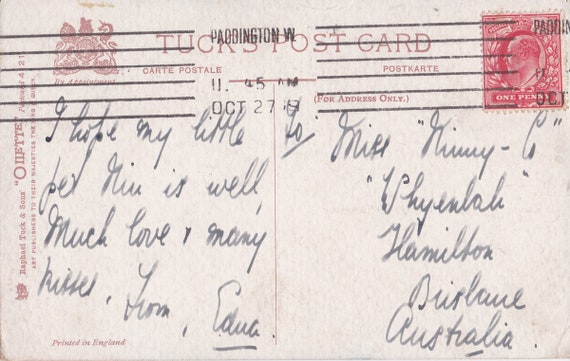 PADDINGTON.W.
11. 45 AM
OCT 27
PADDIN
11.
OCT
TUCK'S POST CARD
By Appointment.
CARTE POSTALE
POSTKARTE
(FOR ADDRESS ONLY.)
ONE PENNY
Raphael Tuck & Sons' "OILETTE"
ART PUBLISHERS TO THEIR MAJESTIES THE KING & QUEEN.
I hope my little
pet Nin is well,
Much love & many
kisses, From,
Edna.
to Miss "Ninny - C"
"Whyenbah"
Hamilton
Brisbane
Australia.
Printed in England